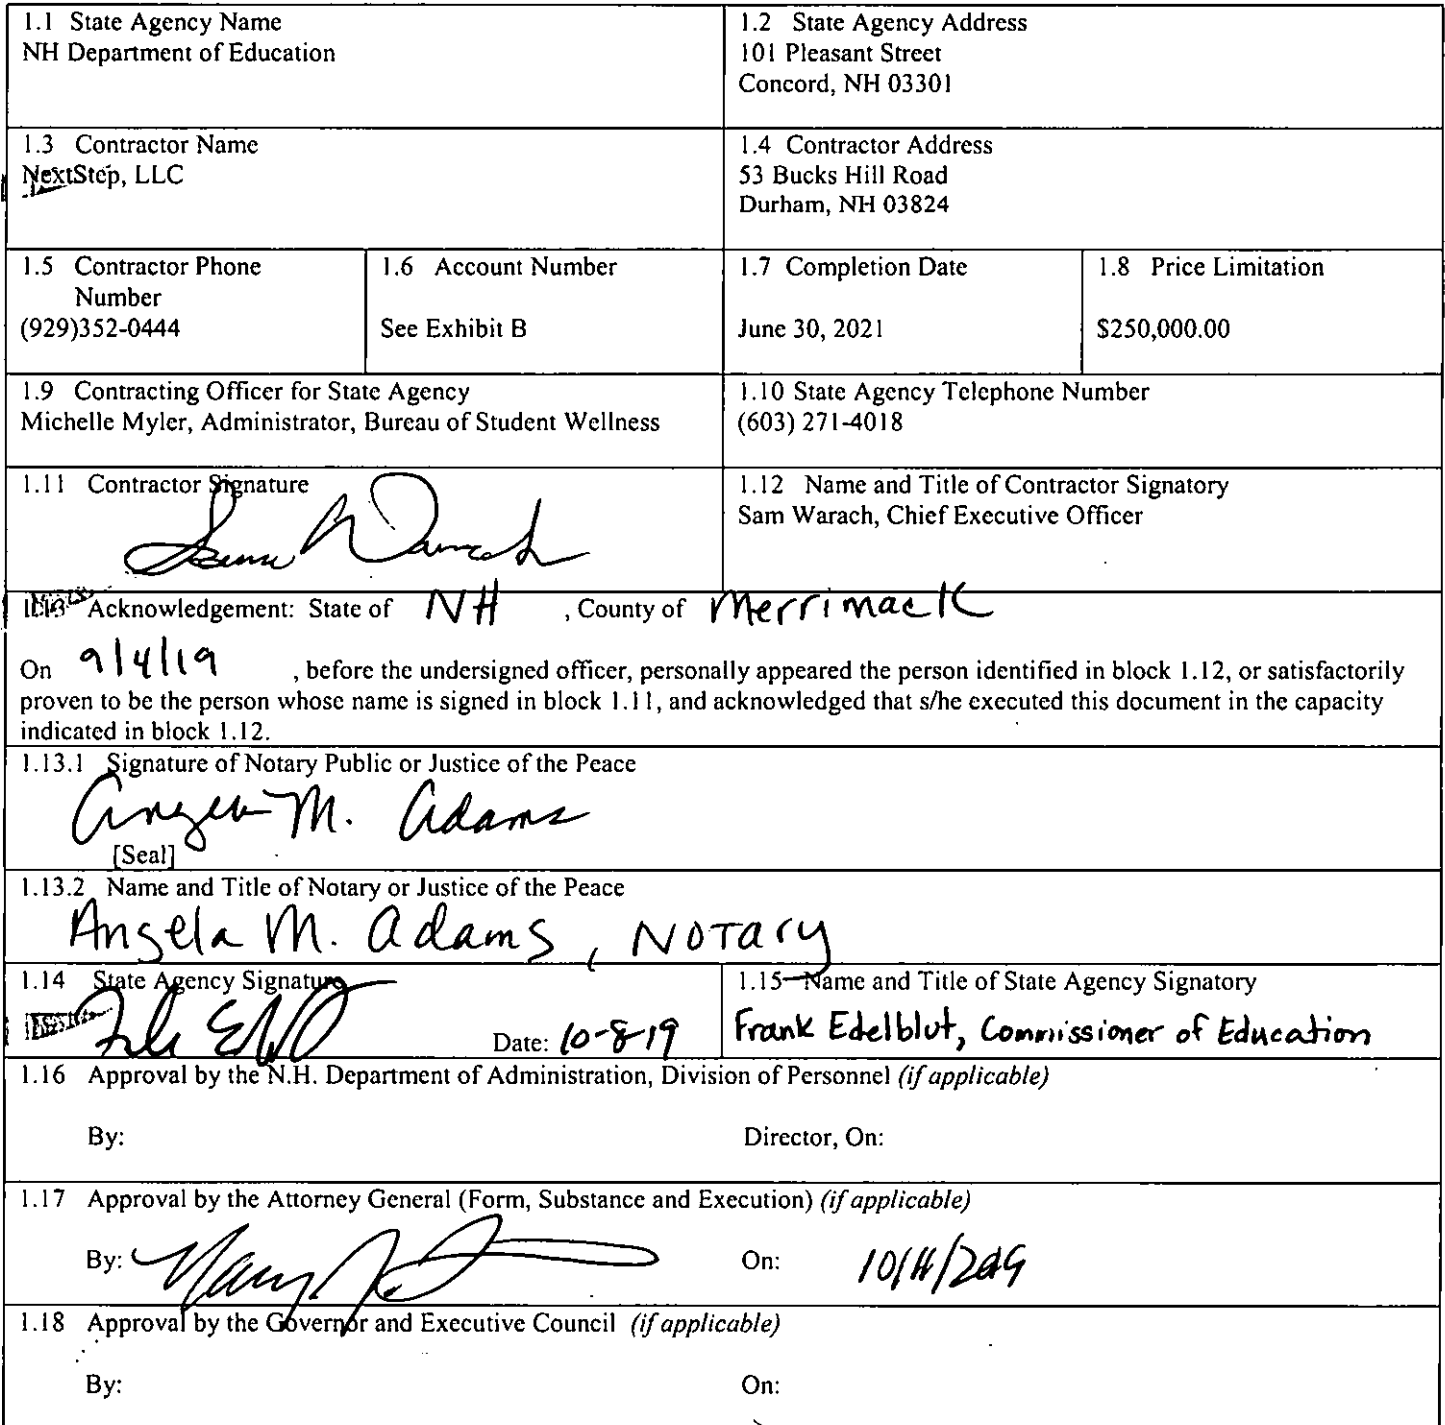 1.1 State Agency Name
NH Department of Education
1.2 State Agency Address
101 Pleasant Street
Concord, NH 03301
1.3 Contractor Name
NextStep, LLC
1.4 Contractor Address
53 Bucks Hill Road
Durham, NH 03824
1.5 Contractor Phone
Number
(929)352-0444
1.6 Account Number
See Exhibit B
1.7 Completion Date
June 30, 2021
1.8 Price Limitation
$250,000.00
1.9 Contracting Officer for State Agency
Michelle Myler, Administrator, Bureau of Student Wellness
1.10 State Agency Telephone Number
(603) 271-4018
1.11 Contractor Signature
1.12 Name and Title of Contractor Signatory
Sam Warach, Chief Executive Officer
Acknowledgement: State of NH , County of Merrimack
On 9/4/19 , before the undersigned officer, personally appeared the person identified in block 1.12, or satisfactorily
proven to be the person whose name is signed in block 1.11, and acknowledged that s/he executed this document in the capacity
indicated in block 1.12.
1.13.1 Signature of Notary Public or Justice of the Peace
Angela M. Adams
[Seal]
1.13.2 Name and Title of Notary or Justice of the Peace
Angela M. Adams, Notary
1.14 State Agency Signature
Date: 10-8-19
1.15 Name and Title of State Agency Signatory
Frank Edelblut, Commissioner of Education
1.16 Approval by the N.H. Department of Administration, Division of Personnel (if applicable)
By: Director, On:
1.17 Approval by the Attorney General (Form, Substance and Execution) (if applicable)
By: On:
1.18 Approval by the Governor and Executive Council (if applicable)
By: On: